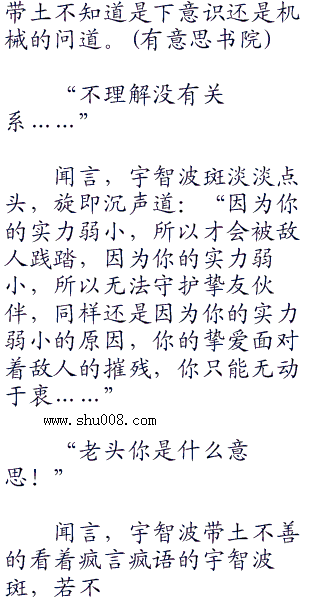 带土不知道是下意识还是机
械的问道。(有意思书院)
“不理解没有关
系……”
闻言，宇智波斑淡淡点
头，旋即沉声道：“因为你
的实力弱小，所以才会被敌
人践踏，因为你的实力弱
小，所以无法守护挚友伙
伴，同样还是因为你的实力
弱小的原因，你的挚爱面对
着敌人的摧残，你只能无动
于衷……”
www.shu008.com
“老头你是什么意
思！”
闻言，宇智波带土不善
的看着疯言疯语的宇智波
斑，若不